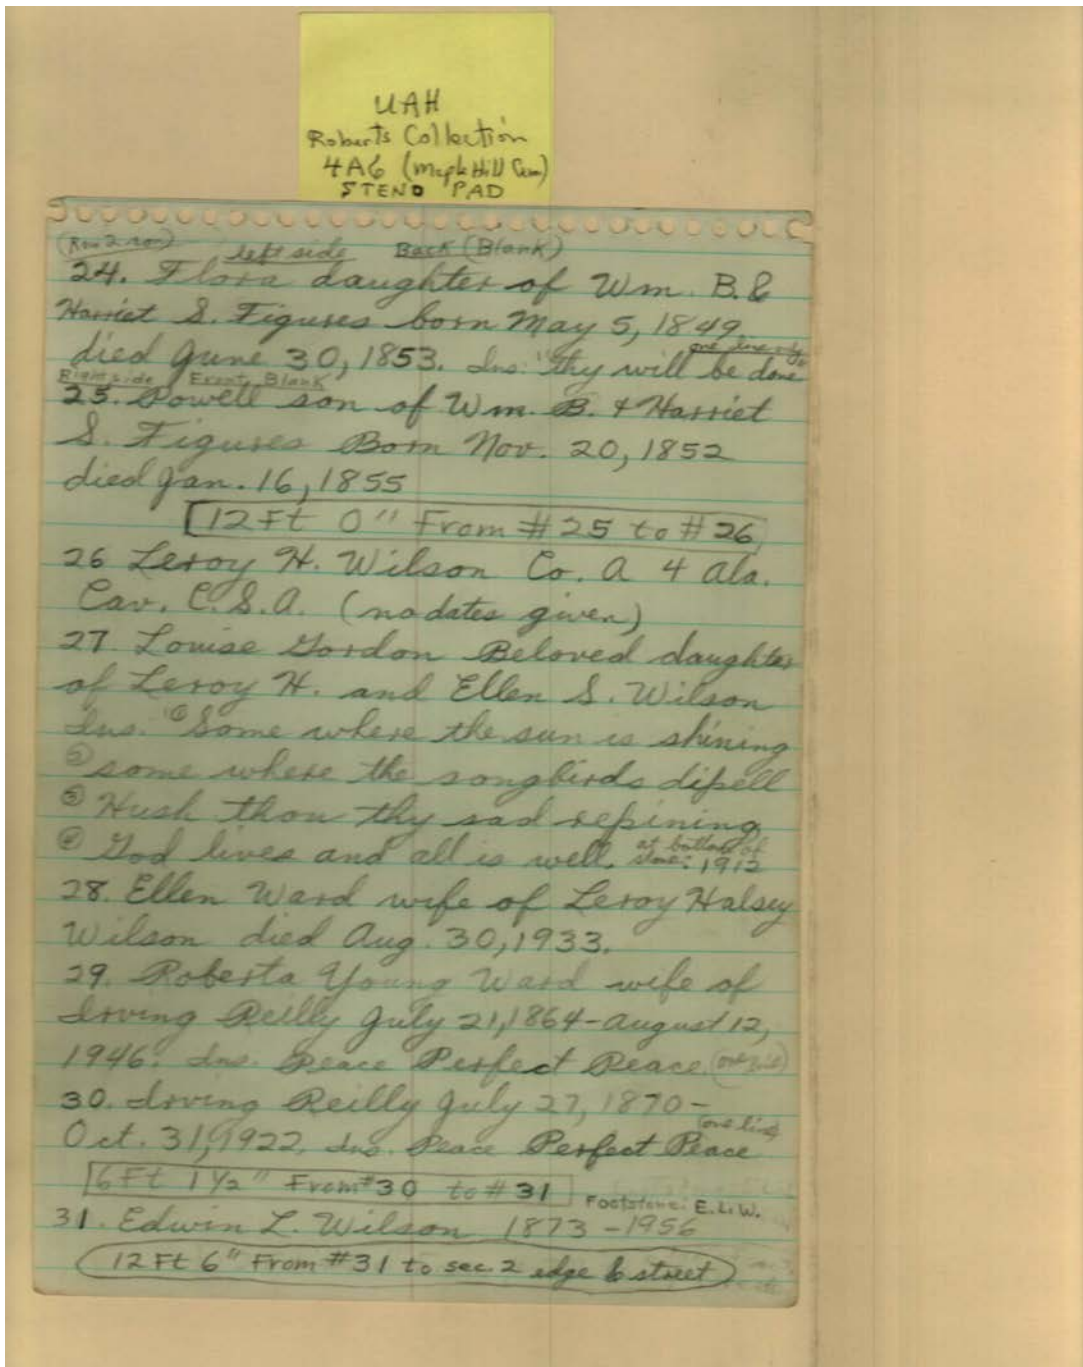 UAH
Roberts Collection
4A6 (Maple Hill Cem)
STENO PAD
(Row 2 con) left side Back (Blank)
24. Flora daughter of Wm. B. &
Harriet S. Figures born May 5, 1849
one line only
died June 30, 1853. Ins. "Thy will be done
Right side Front Blank
25. Powell son of Wm. B. & Harriet
S. Figures Born Nov. 20, 1852
died Jan. 16, 1855
12 Ft 0" From #25 to #26
26 Leroy H. Wilson Co. A 4 Ala.
Cav. C.S.A. (no dates given)
27. Louise Gordon Beloved daughter
of Leroy H. and Ellen S. Wilson
Ins. ① Some where the sun is shining
② some where the songbirds dwell
③ Hush thou thy sad repining
④ God lives and all is well. at bottom of stone: 1912
28. Ellen Ward wife of Leroy Halsey
Wilson died Aug. 30, 1933.
29. Roberta Young Ward wife of
Irving Reilly July 21, 1864 - August 12,
1946. Ins. Peace Perfect Peace (one line)
30. Irving Reilly July 27, 1870 -
(one line)
Oct. 31, 1922. Ins. Peace Perfect Peace
6 Ft 1 1/2" From #30 to #31 Footstone: E.L.W.
31. Edwin L. Wilson 1873 - 1956
12 Ft 6" From #31 to sec. 2 edge & street